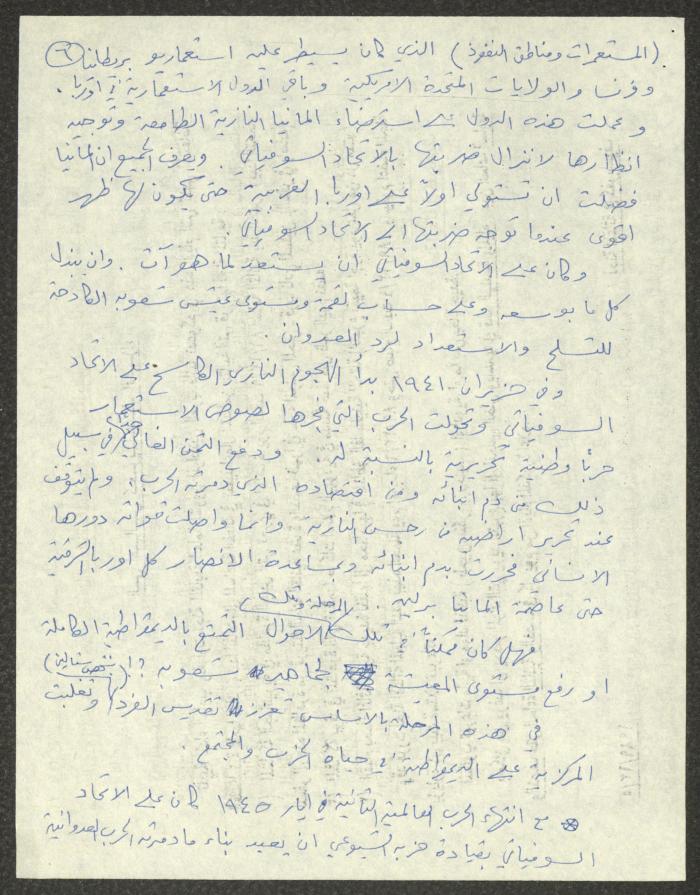 (المستعمرات ومناطق النفوذ) الذي كان يسيطر عليه استعماريو بريطانيا ٦
وفرنسا والولايات المتحدة الامريكية وباقي الدول الاستعمارية في اوربا.
وعملت هذه الدول على استرضاء المانيا النازية الطامعة وتوجيه
انظارها لانزال ضربتها بالاتحاد السوفياتي. ويعرف الجميع ان المانيا
فضلت ان تستولي اولاً على اوربا الغربية حتى يكون لها ظهر
اقوى عندما توجه ضربتها الى الاتحاد السوفياتي.
وكان على الاتحاد السوفياتي ان يستعد لما هو آت. وان يبذل
كل ما بوسعه وعلى حساب لقمة ومستوى عيش شعوبه الكادحة
للتسلح والاستعداد لرد العدوان.
وفي حزيران ١٩٤١ بدأ الهجوم النازي الكاسح على الاتحاد
السوفياتي وتحولت الحرب التي فجرها لصوص الاستعمار
حرباً وطنية تحريرية بالنسبة له. ودفع الثمن الغالي جداً في سبيل
ذلك من دم ابنائه ومن اقتصاده الذي دمرته الحرب، ولم يتوقف
عند تحرير اراضيه من رجس النازية وانما واصلت قواته دورها
الانساني فحررت بدم ابنائه وبمساعدة الانصار كل اوربا الشرقية
حتى عاصمة المانيا برلين.
فهل كان ممكناً في تلك المرحلة وتلك الاحوال التمتع بالديمقراطية الكاملة
او رفع مستوى المعيشة لجماهير شعوبه؟!
في هذه المرحلة بالاساس تعزز تقديس الفرد (شخص ستالين) وتغلبت
المركزية على الديمقراطية في حياة الحزب والمجتمع.
مع انتهاء الحرب العالمية الثانية في ايار ١٩٤٥ كان على الاتحاد
السوفياتي بقيادة حزبه الشيوعي ان يعيد بناء ما دمرته الحرب العدوانية